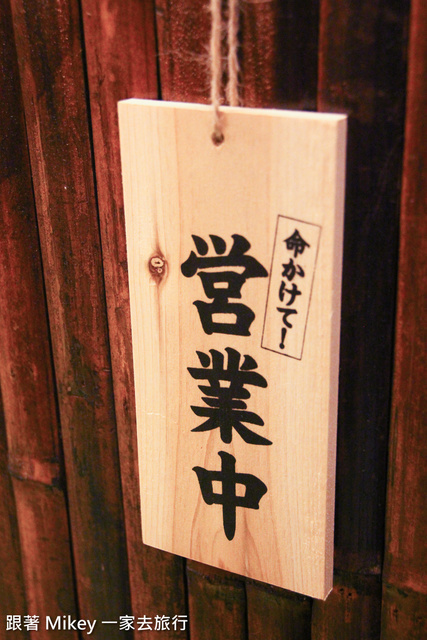 命かけて!
営業中
跟著 Mikey 一家去旅行